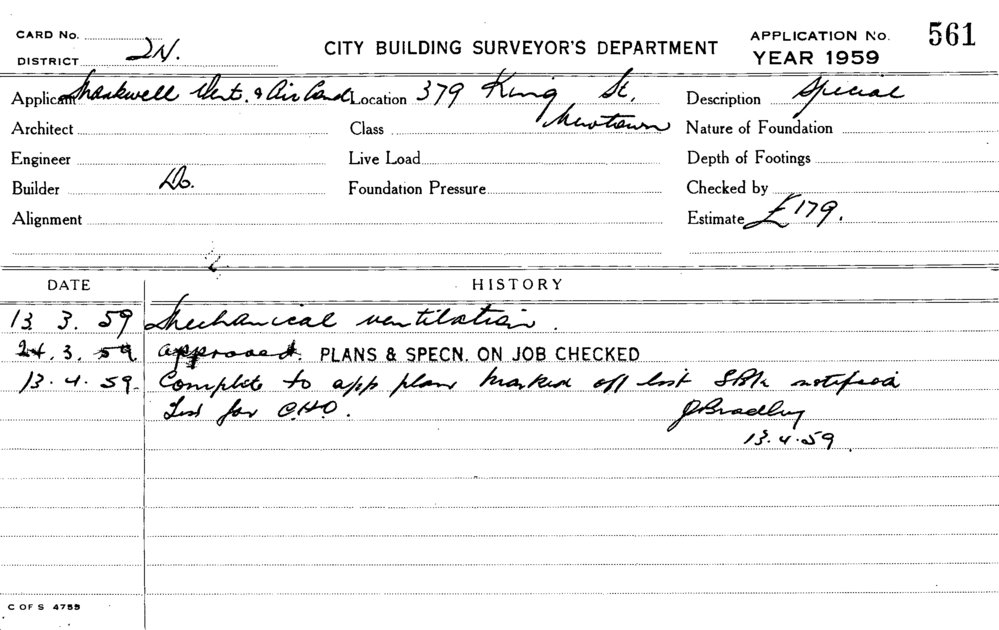 CARD No.
DISTRICT 2N.
CITY BUILDING SURVEYOR'S DEPARTMENT
APPLICATION No. 561
YEAR 1959
Applicant Vent. & Air Cond Location 379 King St. Newtown Description Special
Architect Class Nature of Foundation
Engineer Live Load Depth of Footings
Builder Do. Foundation Pressure Checked by
Alignment Estimate £179.
DATE HISTORY
13. 3. 59 Mechanical ventilation.
24. 3. 59 approved. PLANS & SPECN. ON JOB CHECKED
13. 4. 59. Complete to app plan marked off list notified
for C.H.O. JBradley
13. 4. 59
C OF S 4759